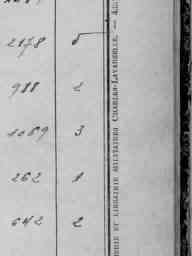 2178 5
988 2
1089 3
262 1
642 2
RIE ET LIBRAIRIE MILITAIRES CHARLES-LAVAUZELLE. —